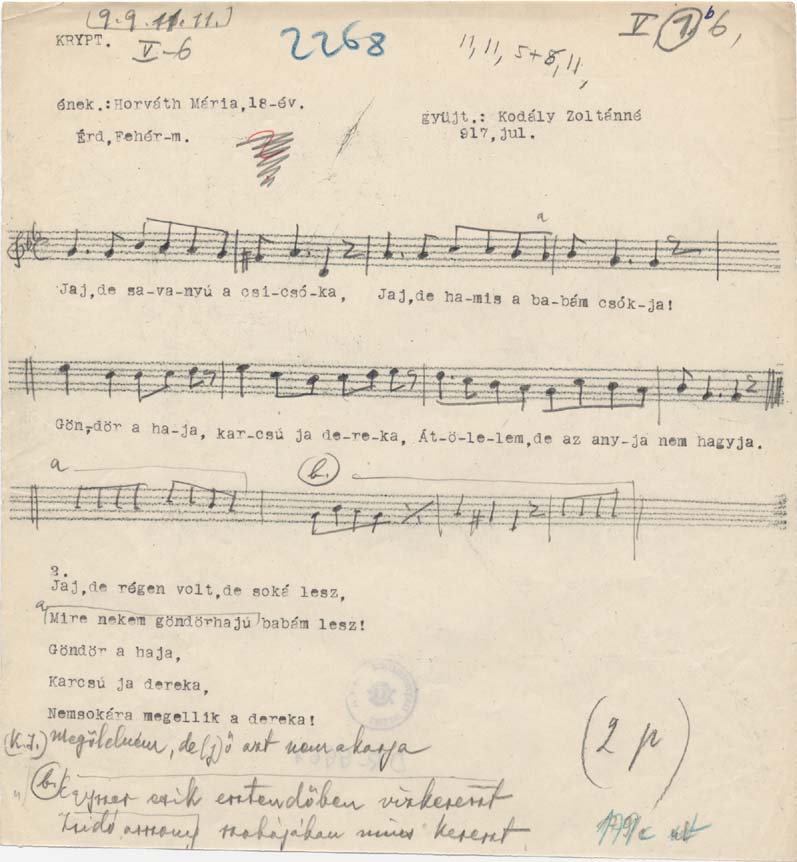 (9.9.11.11.)
KRYPT.
V-6
2268
11, 11, 5+6, 11,
V, 7. b 6,
ének.:Horváth Mária,18-év.
Érd,Fehér-m.
gyüjt.: Kodály Zoltánné
917,jul.
a
Jaj,de sa-va-nyú a csi-csó-ka, Jaj,de ha-mis a ba-bám csók-ja!
Gön-dör a ha-ja, kar-csú ja de-re-ka, Át-ö-le-lem,de az any-ja nem hagyja.
a b.
2.
Jaj,de régen volt,de soká lesz,
a Mire nekem göndörhajú babám lesz!
Göndör a haja,
Karcsú ja dereka,
Nemsokára megellik a dereka!
(K.I.) Megölelném, de (j)ő azt nem akarja
b. Egyszer esik esztendőben vizkereszt
Zsidó asszony szobájában nincs kereszt
(2 p)